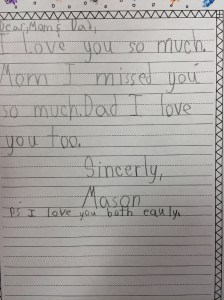 Dear, Mom & Dad,
I Love you so much.
Mom I missed you
so much. Dad I love
you too.
Sincerly,
Mason
PS I love you both eauly.